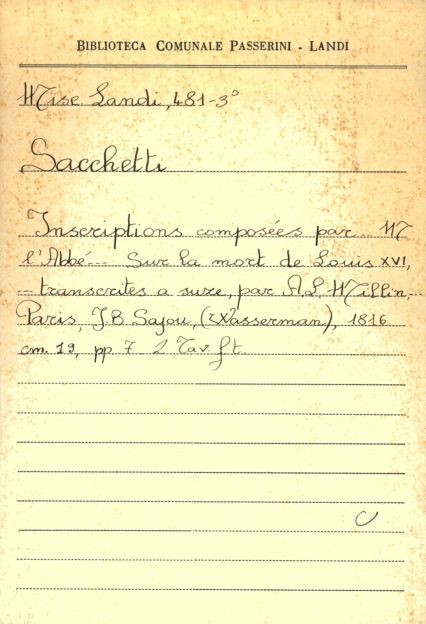 BIBLIOTECA COMUNALE PASSERINI - LANDI
Misc. Landi, 481-3°
Sacchetti
Inscriptions composées par... M
l'Abbé... Sur la mort de Louis XVI,
- transcrites a suze, par A.L. Millin,..
Paris, J.B. Sajou, (Wasserman), 1816
cm. 19, pp. 7 2 Tav. f.t.
C